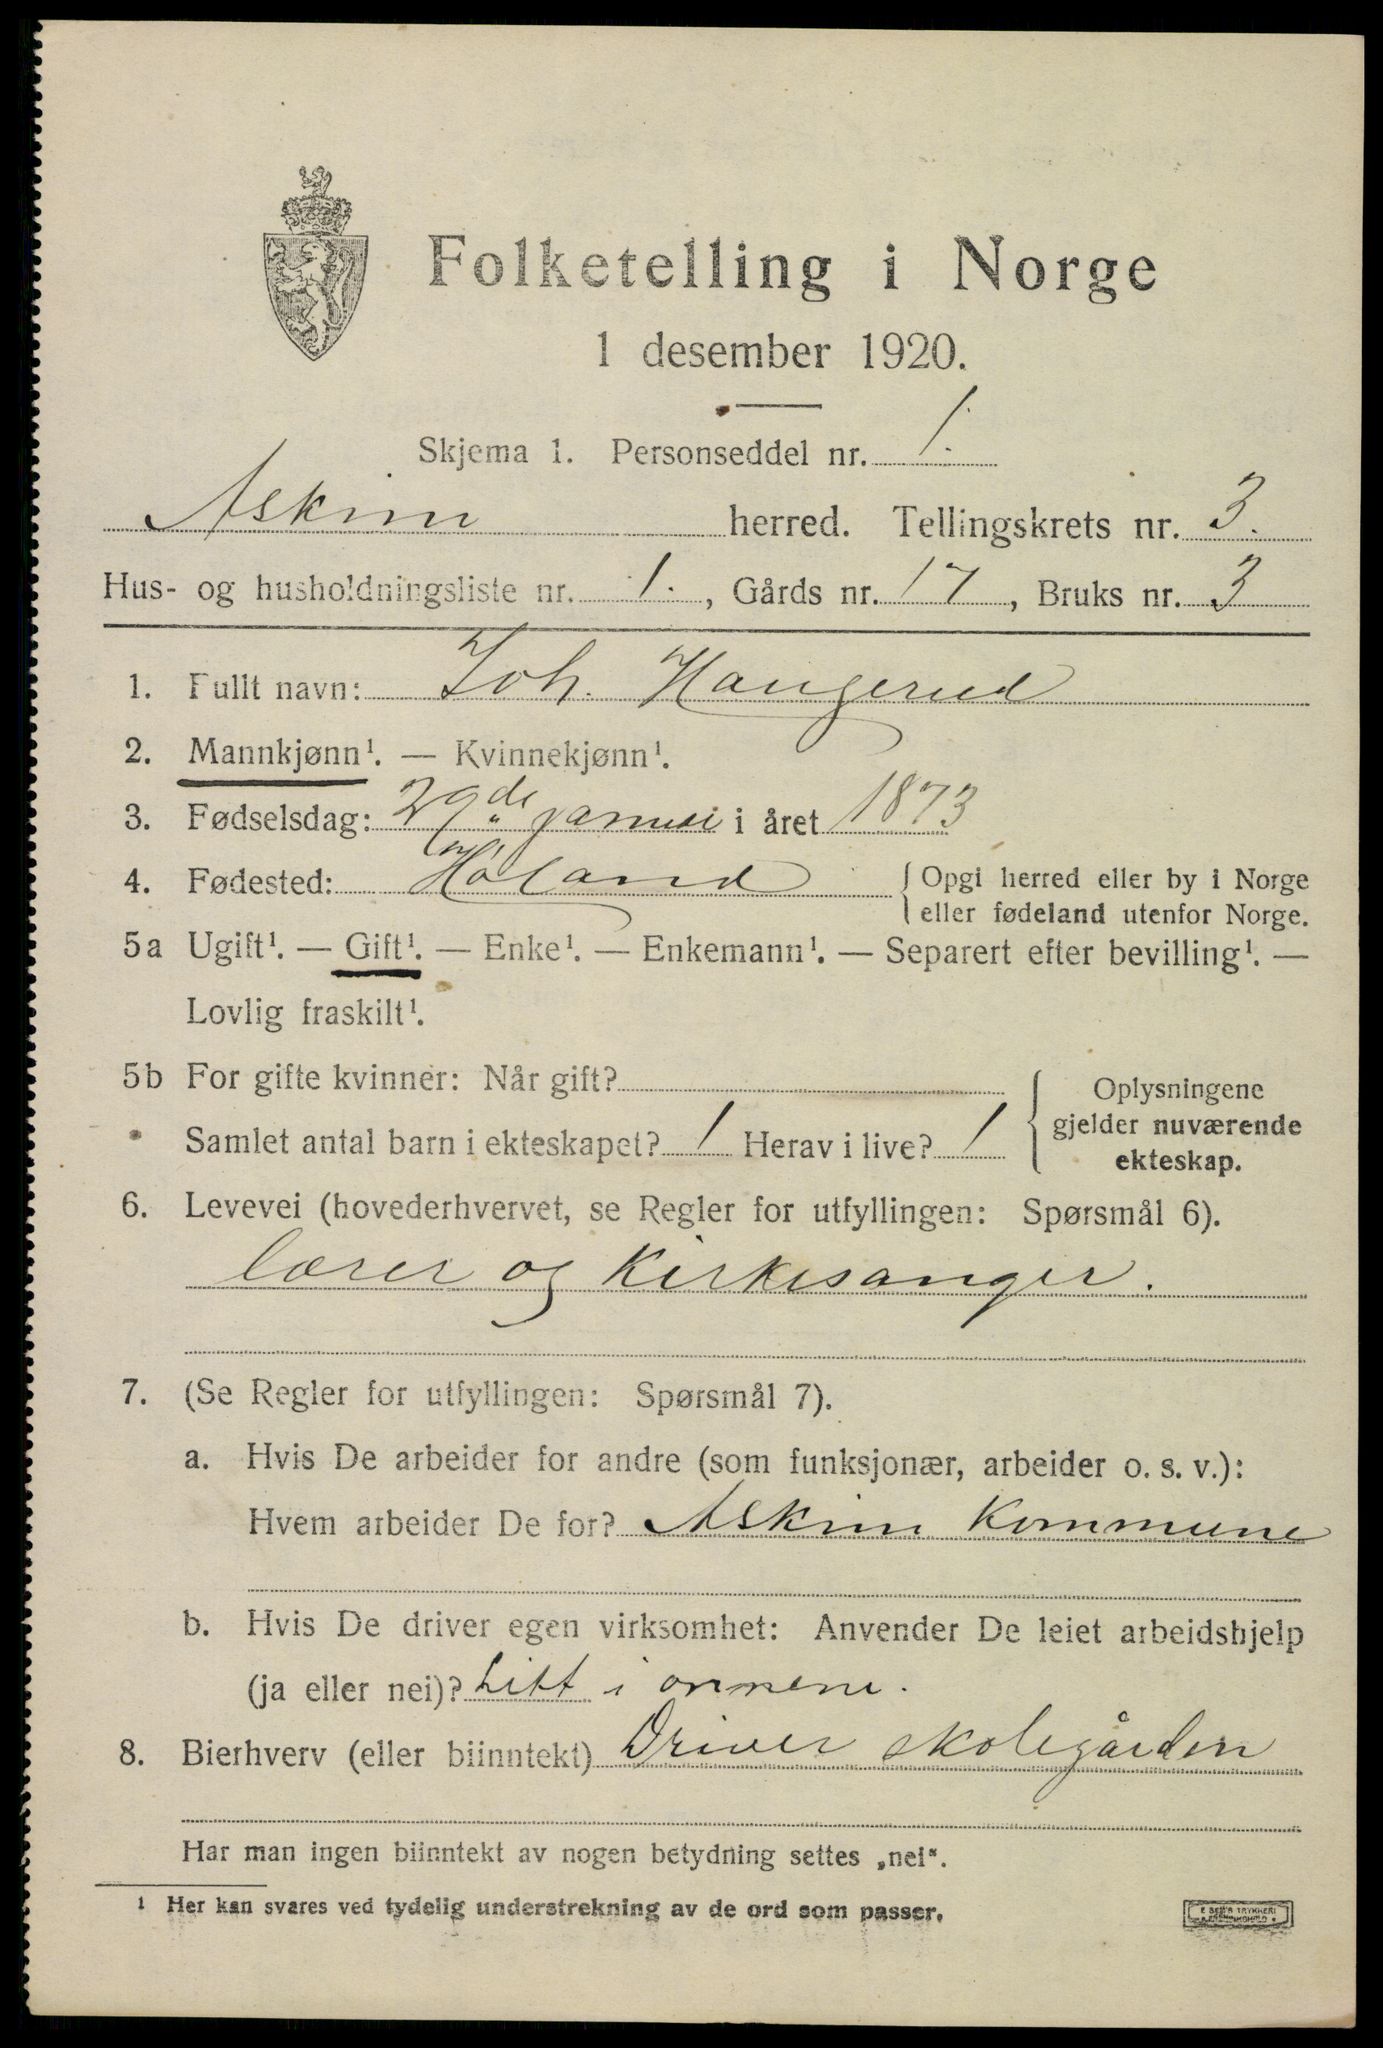 Folketelling i Norge
1 desember 1920.
Skjema 1. Personseddel nr. 1.
Askim herred. Tellingskrets nr. 3.
Hus- og husholdningsliste nr. 1., Gårds nr. 17, Bruks nr. 3
1. Fullt navn: Joh. Haugerud
2. Mannkjønn¹. — Kvinnekjønn¹.
3. Fødselsdag: 29de januar i året 1873
4. Fødested: Høland { Opgi herred eller by i Norge
eller fødeland utenfor Norge.
5a Ugift¹. — Gift¹. — Enke¹. — Enkemann¹. — Separert efter bevilling¹. —
Lovlig fraskilt¹.
5b For gifte kvinner: Når gift?
Samlet antal barn i ekteskapet? 1 Herav i live? 1
Oplysningene
gjelder nuværende
ekteskap.
6. Levevei (hovederhvervet, se Regler for utfyllingen: Spørsmål 6).
lærer og kirkesanger.
7. (Se Regler for utfyllingen: Spørsmål 7).
a. Hvis De arbeider for andre (som funksjonær, arbeider o. s. v.):
Hvem arbeider De for? Askim kommune
b. Hvis De driver egen virksomhet: Anvender De leiet arbeidshjelp
(ja eller nei)? Litt i onnene.
8. Bierhverv (eller biinntekt) Driver skolegården
Har man ingen biinntekt av nogen betydning settes „nei“.
¹ Her kan svares ved tydelig understrekning av de ord som passer.